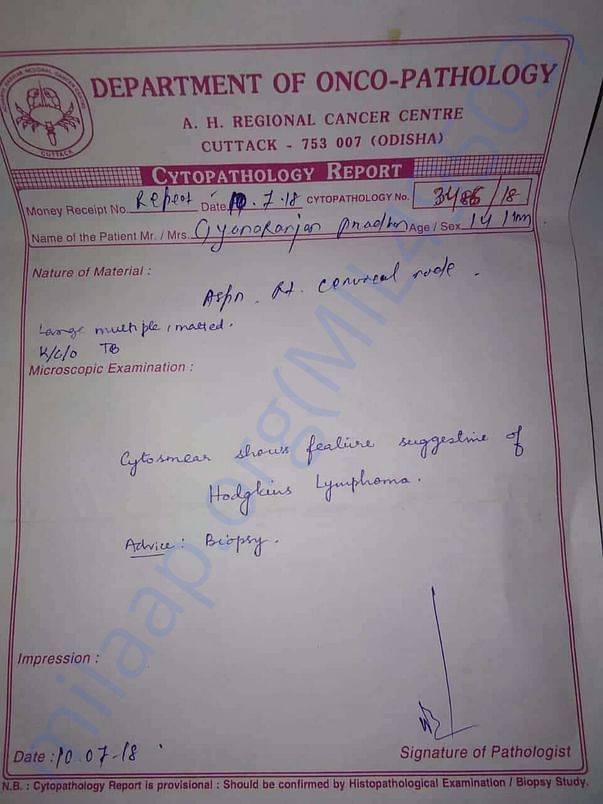 DEPARTMENT OF ONCO-PATHOLOGY
A. H. REGIONAL CANCER CENTRE
CUTTACK - 753 007 (ODISHA)
CUTTACK
CYTOPATHOLOGY REPORT
Money Receipt No. Repeat Date 10.7.18 CYTOPATHOLOGY No. 3486/18
Name of the Patient Mr. / Mrs. Gyanaranjan Pradhan Age / Sex 14
Nature of Material :
Aspn. Rt. cervical node.
Large multiple, matted.
K/C/O TB
Microscopic Examination :
Cytosmear shows feature suggestive of
Hodgkins Lymphoma.
Advice: Biopsy.
Impression :
Date : 10.07.18
Signature of Pathologist
N.B. : Cytopathology Report is provisional : Should be confirmed by Histopathological Examination / Biopsy Study.
milaap.org(MIL